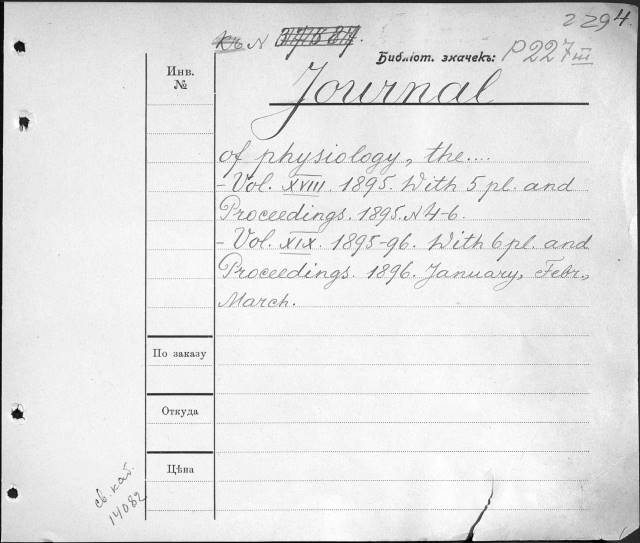 2294.
Къ N 37587.
Библіот. значекъ: P227 III
Инв.
№
Journal
of physiology, the....
- Vol. XVIII. 1895. With 5 pl. and
Proceedings. 1895. N 4-6.
- Vol. XIX. 1895-96. With 6 pl. and
Proceedings. 1896. January, Febr.,
March.
По заказу
Откуда
Цѣна
св. каб.
14082